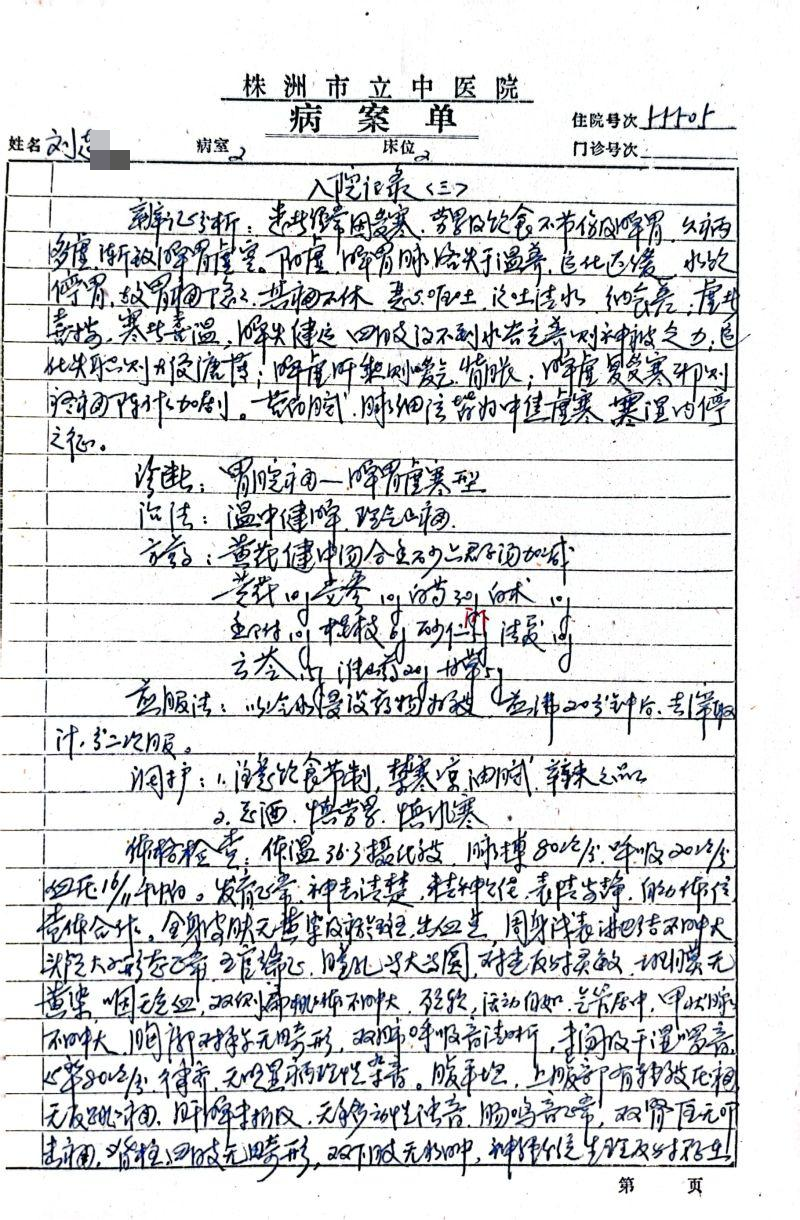 株洲市立中医院
病案单
住院号次 55505
姓名 刘 病室 2 床位 2 门诊号次
入院记录(三)
辨证分析:患者经常因受寒、劳累及饮食不节伤及脾胃,久病
多虚,渐致脾胃虚寒。阳虚,脾胃脉络失于温养,运化迟缓,水饮
停胃,故胃痛隐隐,其痛不休,恶心呕吐,泛吐清水,纳食差;虚者
喜按,寒者喜温,脾失健运,四肢得不到水谷充养则神疲乏力;运
化失职则大便溏薄;脾虚肝郁则嗳气,腹胀;脾虚复受寒邪则
疼痛阵作加剧。苔白腻,脉细弦皆为中焦虚寒,寒湿内停
之征。
诊断:胃脘痛—脾胃虚寒型
治法:温中健脾,理气止痛。
方药:黄芪健中汤合香砂六君子汤加减
黄芪10g 党参10g 白芍30g 白术10g
香附10g 桂枝6g 砂仁 法夏10g
云苓15g 淮山药20g 甘草5g
煎服法:以冷水浸没药物为度,煎沸20分钟后,去滓取
汁,分二次服。
调护:1.注意饮食节制,禁寒凉油腻、辛辣之品。
2.忌酒,慎劳累,慎风寒。
体格检查:体温36.3摄氏度,脉搏80次/分,呼吸20次/分
血压16/11千帕。发育正常,神志清楚,精神倦,表情安静,自动体位
查体合作。全身皮肤无黄染及瘀斑、出血点,周身浅表淋巴结不肿大
头颅大小形态正常,五官端正,瞳孔等大等圆,对光反射灵敏,巩膜无
黄染,咽无充血,双侧扁桃体不肿大,颈软,活动自如,气管居中,甲状腺
不肿大,胸廓对称无畸形,双肺呼吸音清晰,未闻及干湿啰音,
心率80次/分,律齐,无明显病理性杂音。腹平坦,上腹部有轻度压痛
无反跳痛,肝脾未扪及,无移动性浊音,肠鸣音正常,双肾区无叩
击痛,脊柱四肢无畸形,双下肢无水肿,神经系统生理反射存在
第 页